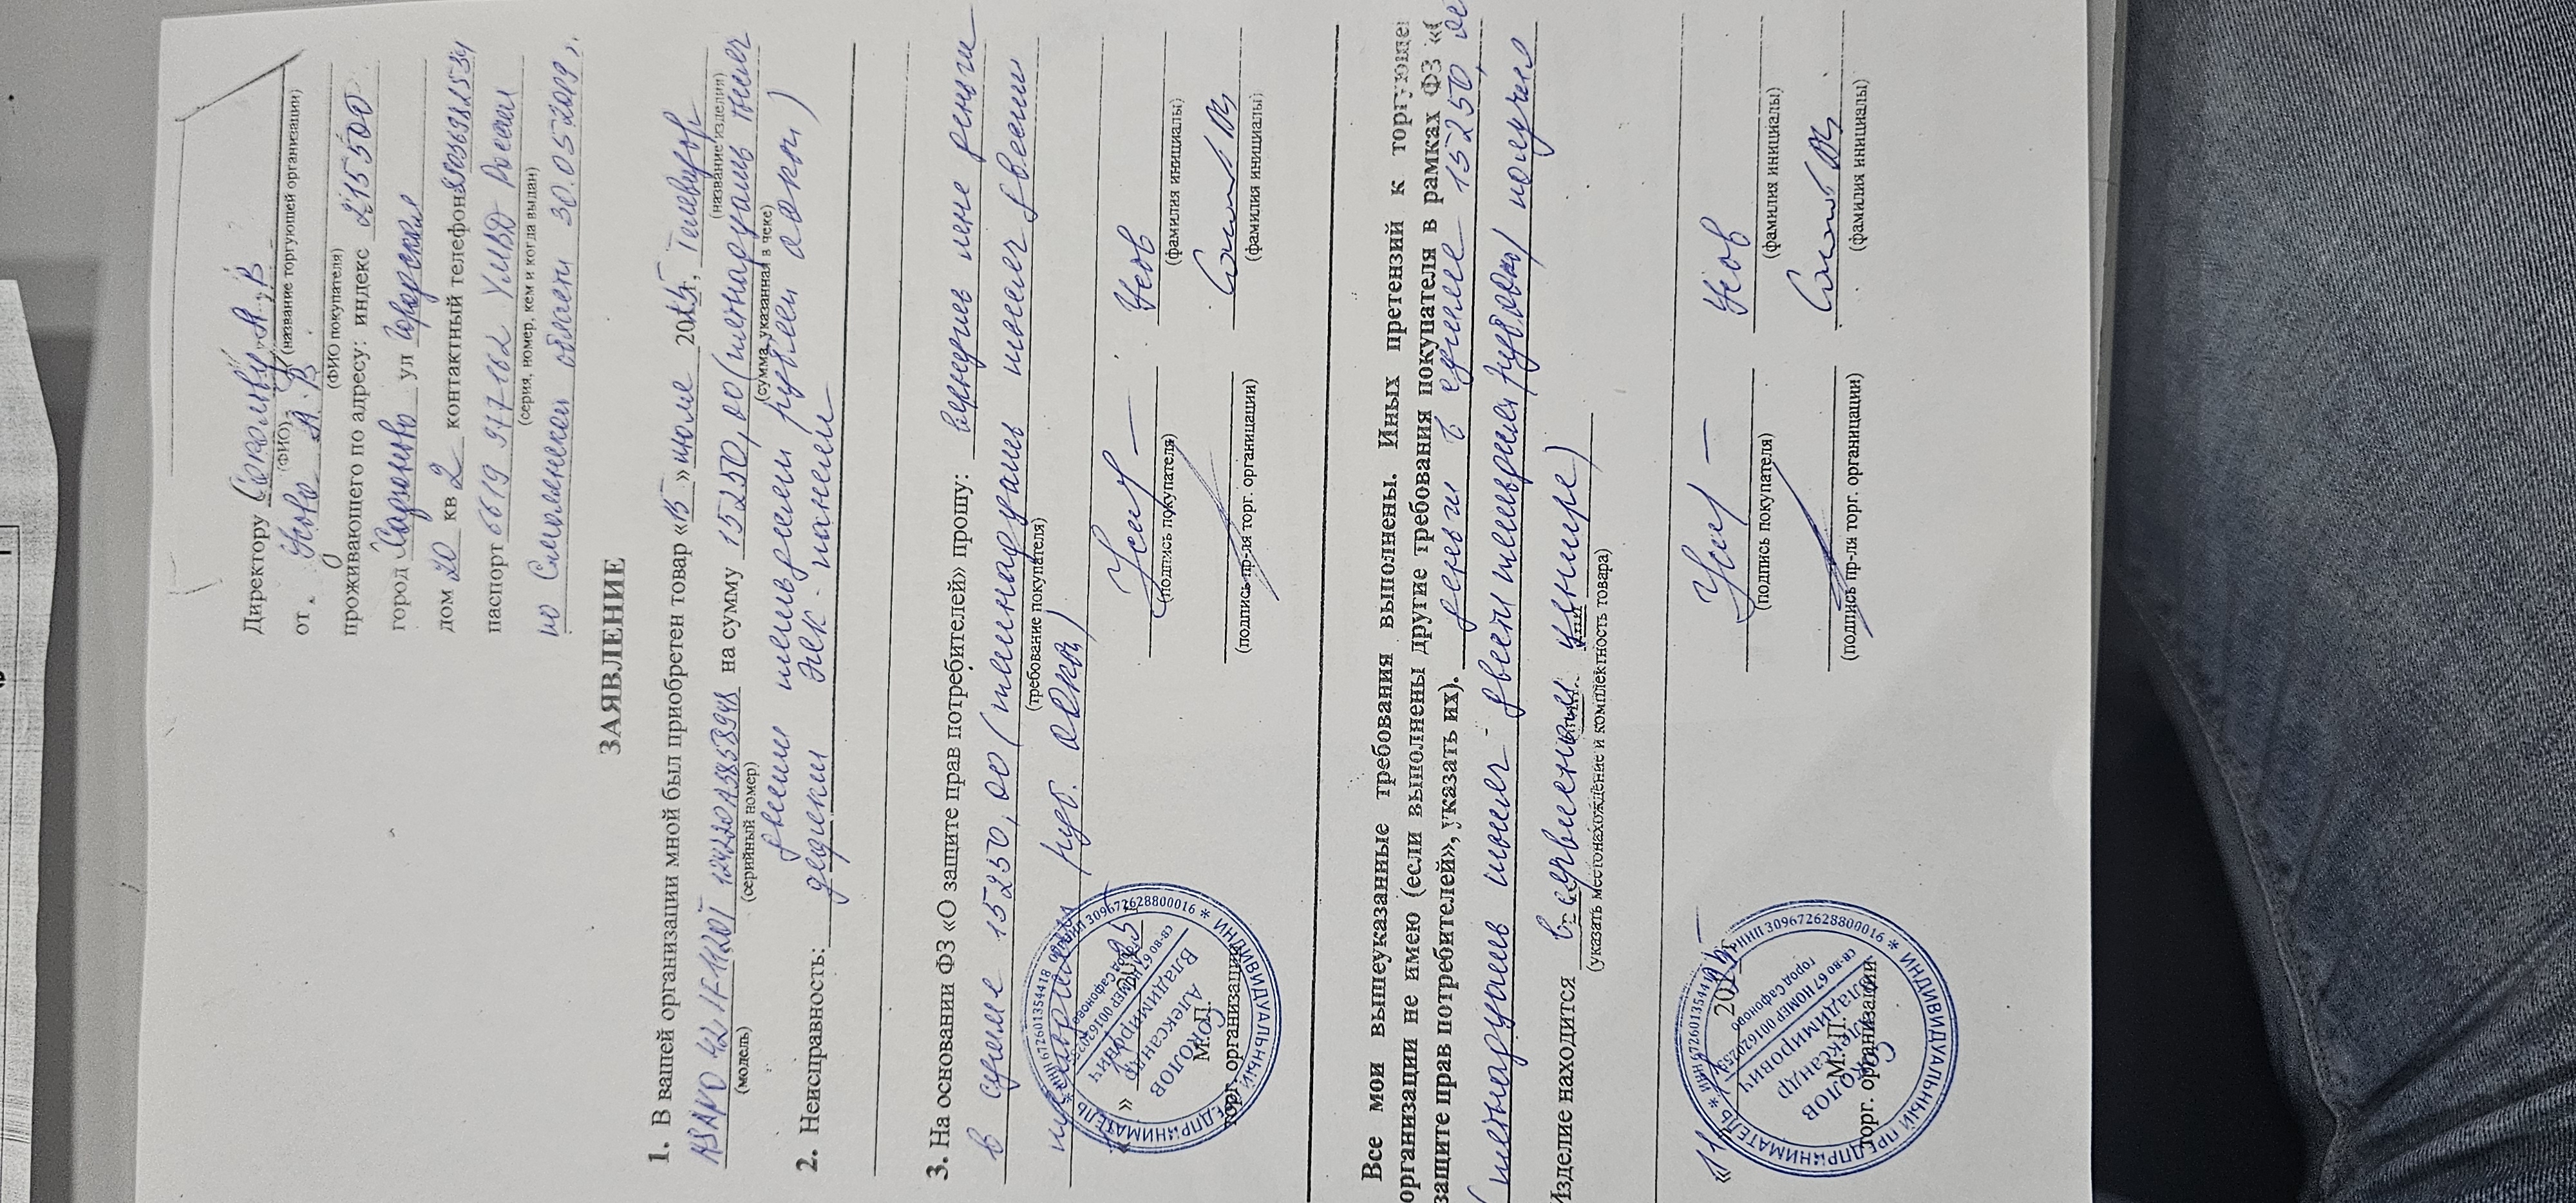 Директору Соколову А.В
(ФИО) (название торгующей организации)
от Усова А.В.
(ФИО покупателя)
проживающего по адресу: индекс 215500
город Сафоново ул
дом 20 кв 2 контактный телефон
паспорт 6619 977162 УМВД России
(серия, номер, кем и когда выдан)
по Смоленской области 30.05.2019г.
ЗАЯВЛЕНИЕ
1. В вашей организации мной был приобретен товар «15» июля 2025, Телевизор
(название изделия)
ASANO 42 LF1120T на сумму 15250,00 (пятнадцать тысяч
(модель) (серийный номер) (сумма, указанная в чеке)
двести пятьдесят рублей
2. Неисправность: дефект панели
3. На основании ФЗ «О защите прав потребителей» прошу: вернуть мне деньги
в сумме 15250,00 (пятнадцать тысяч двести
(требование покупателя)
пятьдесят руб.
Усов
(подпись покупателя) (фамилия инициалы)
Соколов АВ
(подпись пр-ля торг. организации) (фамилия инициалы)
М.П.
торг. организации
Все мои вышеуказанные требования выполнены. Иных претензий к торгующей
организации не имею (если выполнены другие требования покупателя в рамках ФЗ «О
защите прав потребителей», указать их). деньги в сумме 15250,00
(пятнадцать тысяч двести пятьдесят рублей) получил
Изделие находится в сервисном центре
(указать местонахождение и комплектность товара)
Усов
(подпись покупателя) (фамилия инициалы)
2025г.
Соколов АВ
(подпись пр-ля торг. организации) (фамилия инициалы)
М.П.
торг. организации
ИНДИВИДУАЛЬНЫЙ ПРЕДПРИНИМАТЕЛЬ * ИНН 672601354418 * ОГРНИП 309672628800016 *
Соколов
Александр
Владимирович
город Сафоново